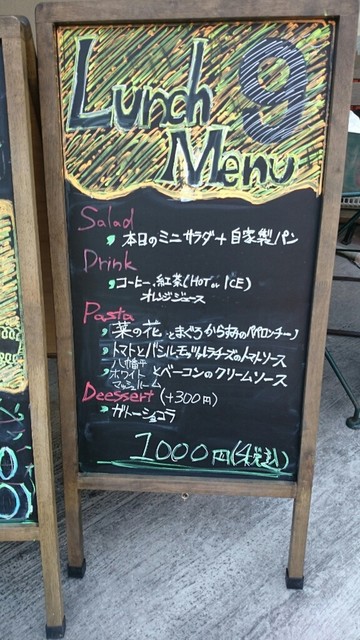 Lunch 9
Menu
Salad
本日のミニサラダ+自家製パン
Drink
コーヒー、紅茶(HOT or ICE)
オレンジジュース
Pasta
「菜の花」とまぐろからすみのペペロンチーノ
トマトとバジルモッツァレラチーズのトマトソース
八幡平
ホワイト
マッシュルーム
とベーコンのクリームソース
Deessert (+300円)
ガトーショコラ
1000円(税込)